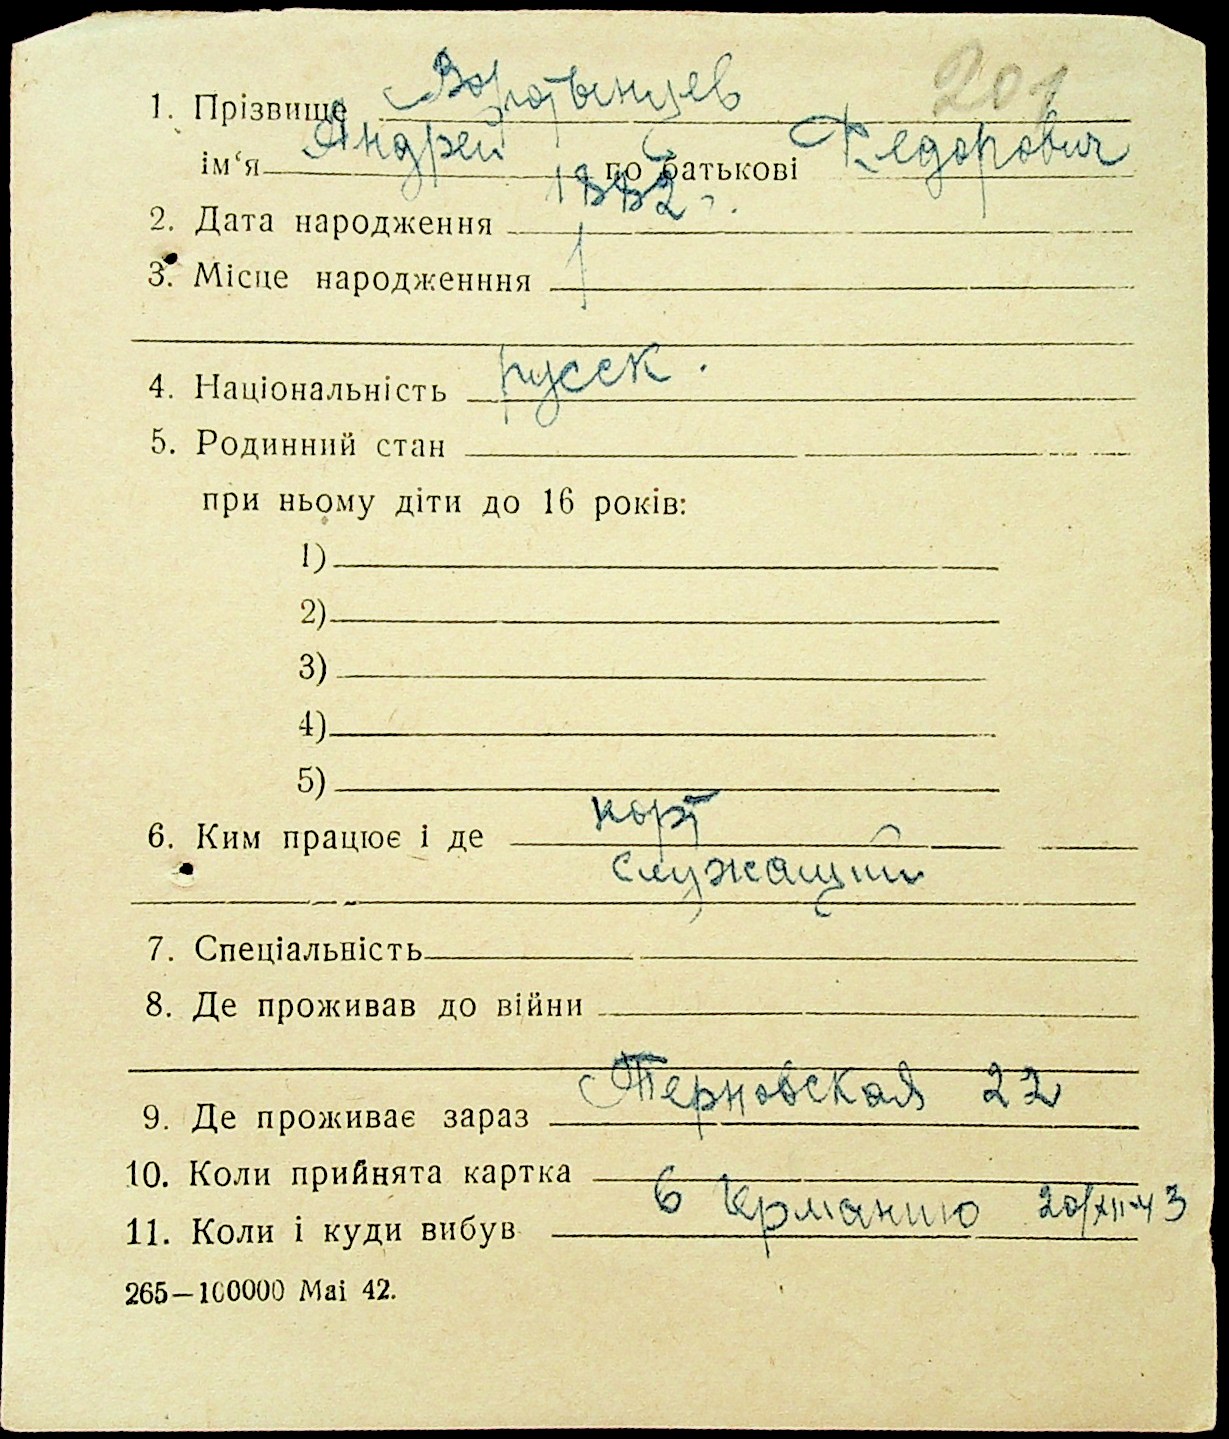 201
1. Прізвище Воротынцев
ім‘я Андрей по батькові Федорович
2. Дата народження 1882 г.
3. Місце народженння
4. Національність русск.
5. Родинний стан
при ньому діти до 16 років:
1)
2)
3)
4)
5)
6. Ким працює і де
служащий
7. Спеціальність
8. Де проживав до війни
9. Де проживає зараз Терновская 22
10. Коли прийнята картка
11. Коли і куди вибув в Германию 20/XII-43
265—100000 Mai 42.